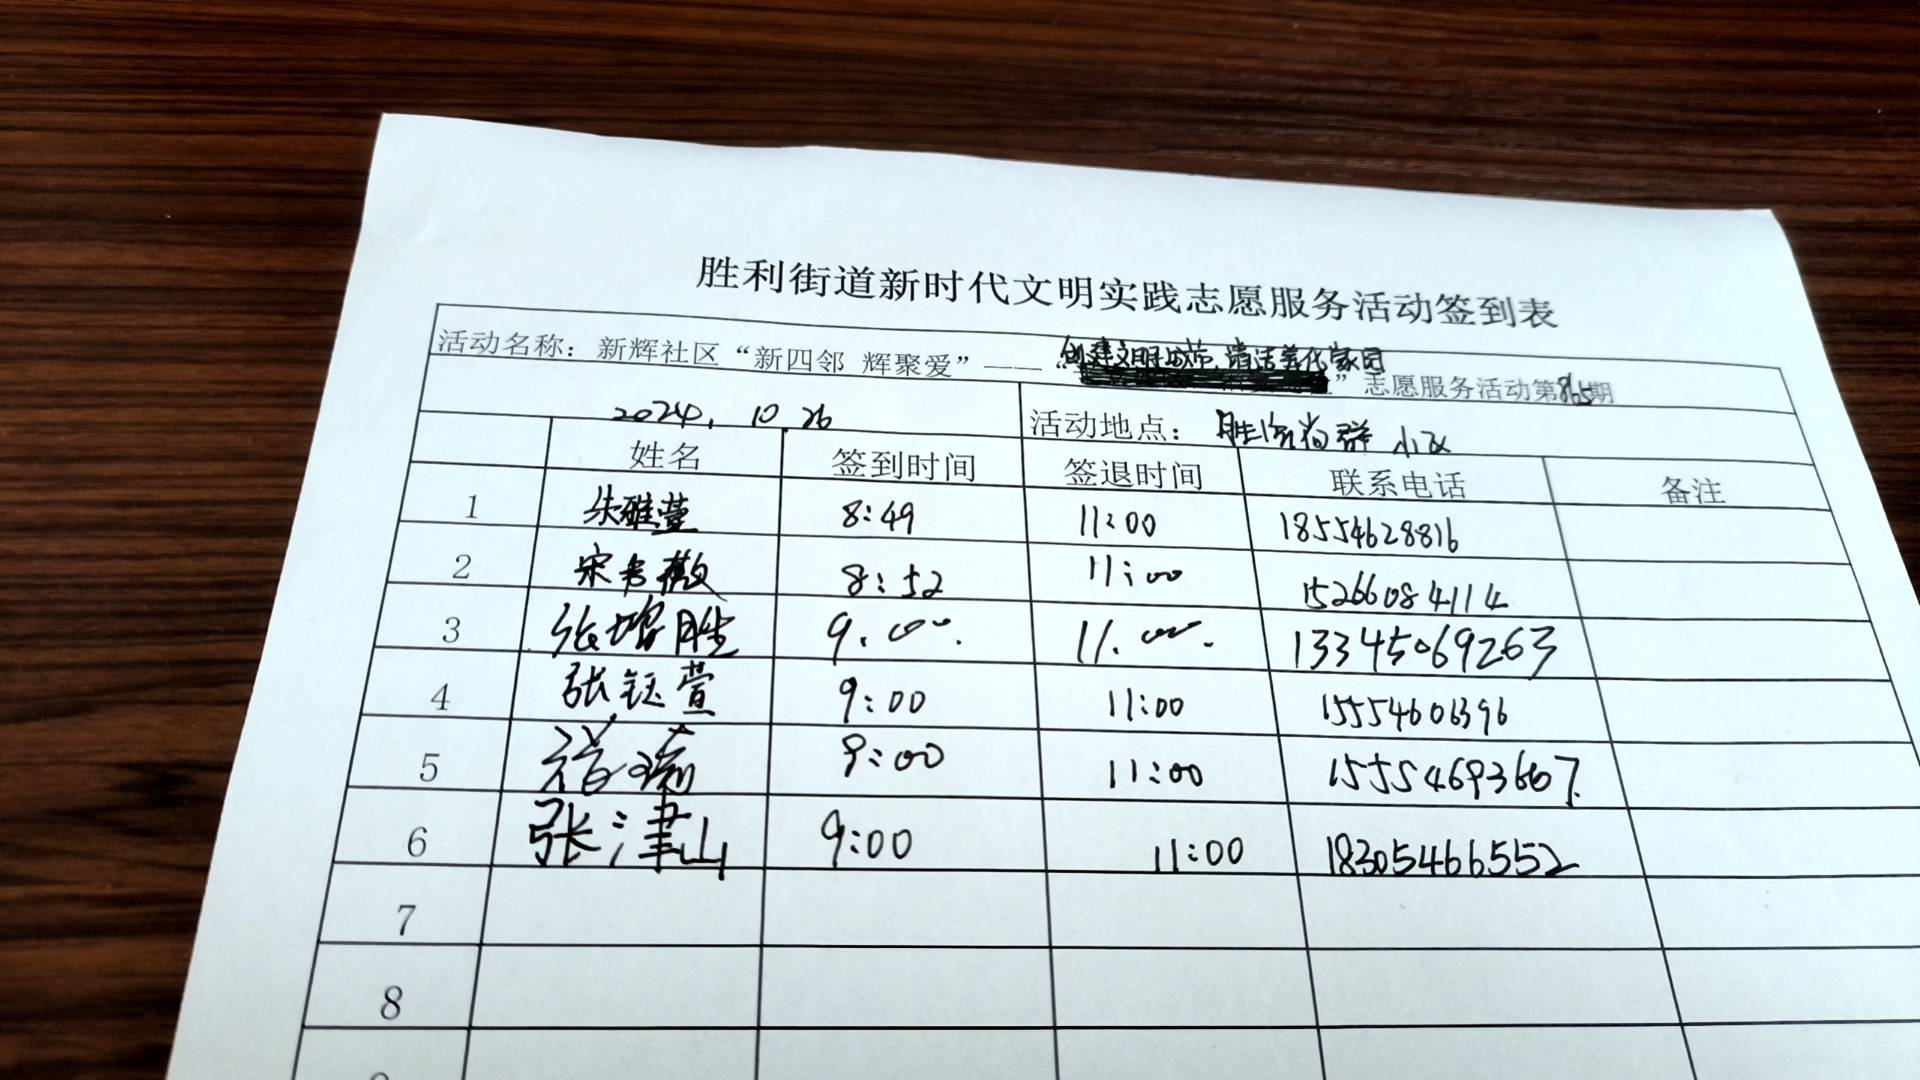 胜利街道新时代文明实践志愿服务活动签到表
活动名称：新辉社区“新四邻 辉聚爱”——“创建文明城市，清洁美化家园”志愿服务活动第865期
2024.10.26 活动地点：胜 小区
姓名 签到时间 签退时间 联系电话 备注
1 朱雅萱 8:49 11:00 18554628816
2 宋 薇 8:52 11:00 15266084114
3 张增胜 9.00. 11.00. 13345069263
4 张钰萱 9:00 11:00 15554606396
5 9:00 11:00 15554693667.
6 张津山 9:00 11:00 18305466552
7
8